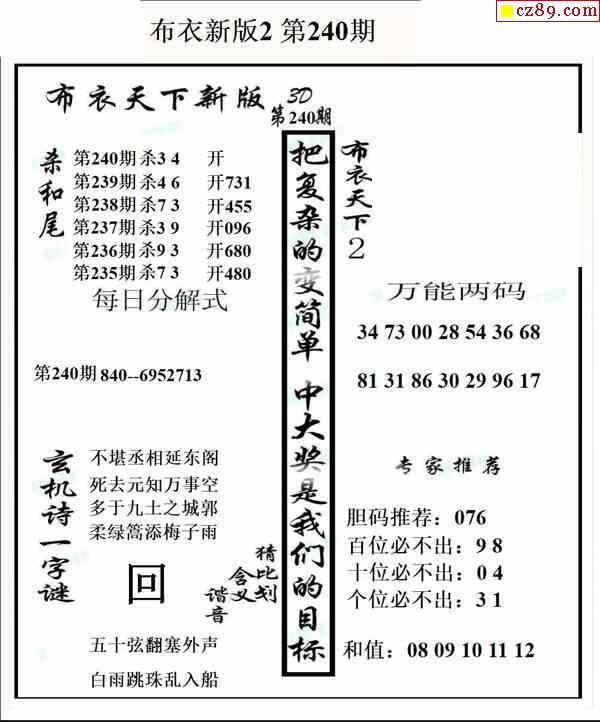 cz89.com
布衣新版2 第240期
布衣天下新版
3D
第240期
杀和尾
第240期杀3 4 开
第239期杀4 6 开731
第238期杀7 3 开455
第237期杀3 9 开096
第236期杀9 3 开680
第235期杀7 3 开480
每日分解式
第240期840--6952713
玄机诗一字谜
不堪丞相延东阁
死去元知万事空
多于九土之城郭
柔绿篙添梅子雨
回
猜比划
含义
谐音
五十弦翻塞外声
白雨跳珠乱入船
把复杂的变简单 中大奖是我们的目标
布衣天下2
万能两码
34 73 00 28 54 36 68
81 31 86 30 29 96 17
专家推荐
胆码推荐：076
百位必不出：9 8
十位必不出：0 4
个位必不出：3 1
和值：08 09 10 11 12